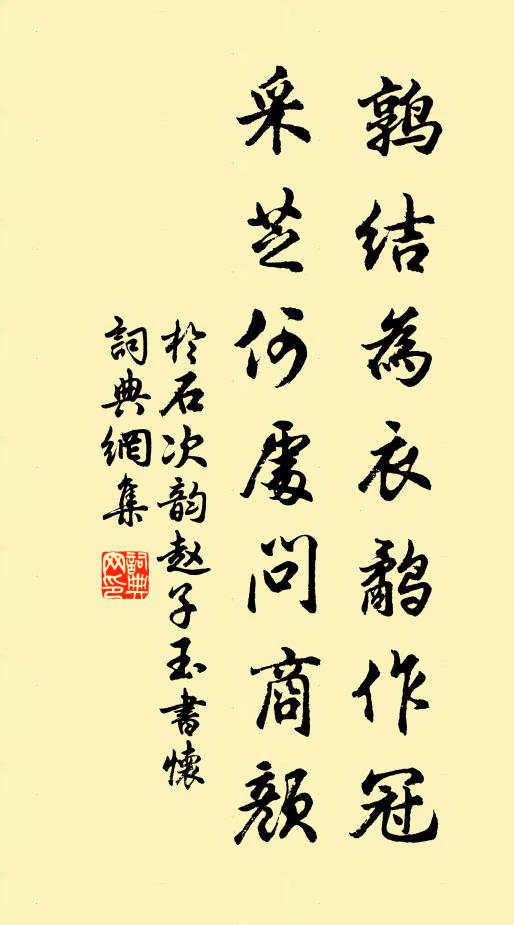 鹑结為衣鹬作冠
采芝何處问商顔
於石次韵赵子玉書懷
詞典網集
詞典网印